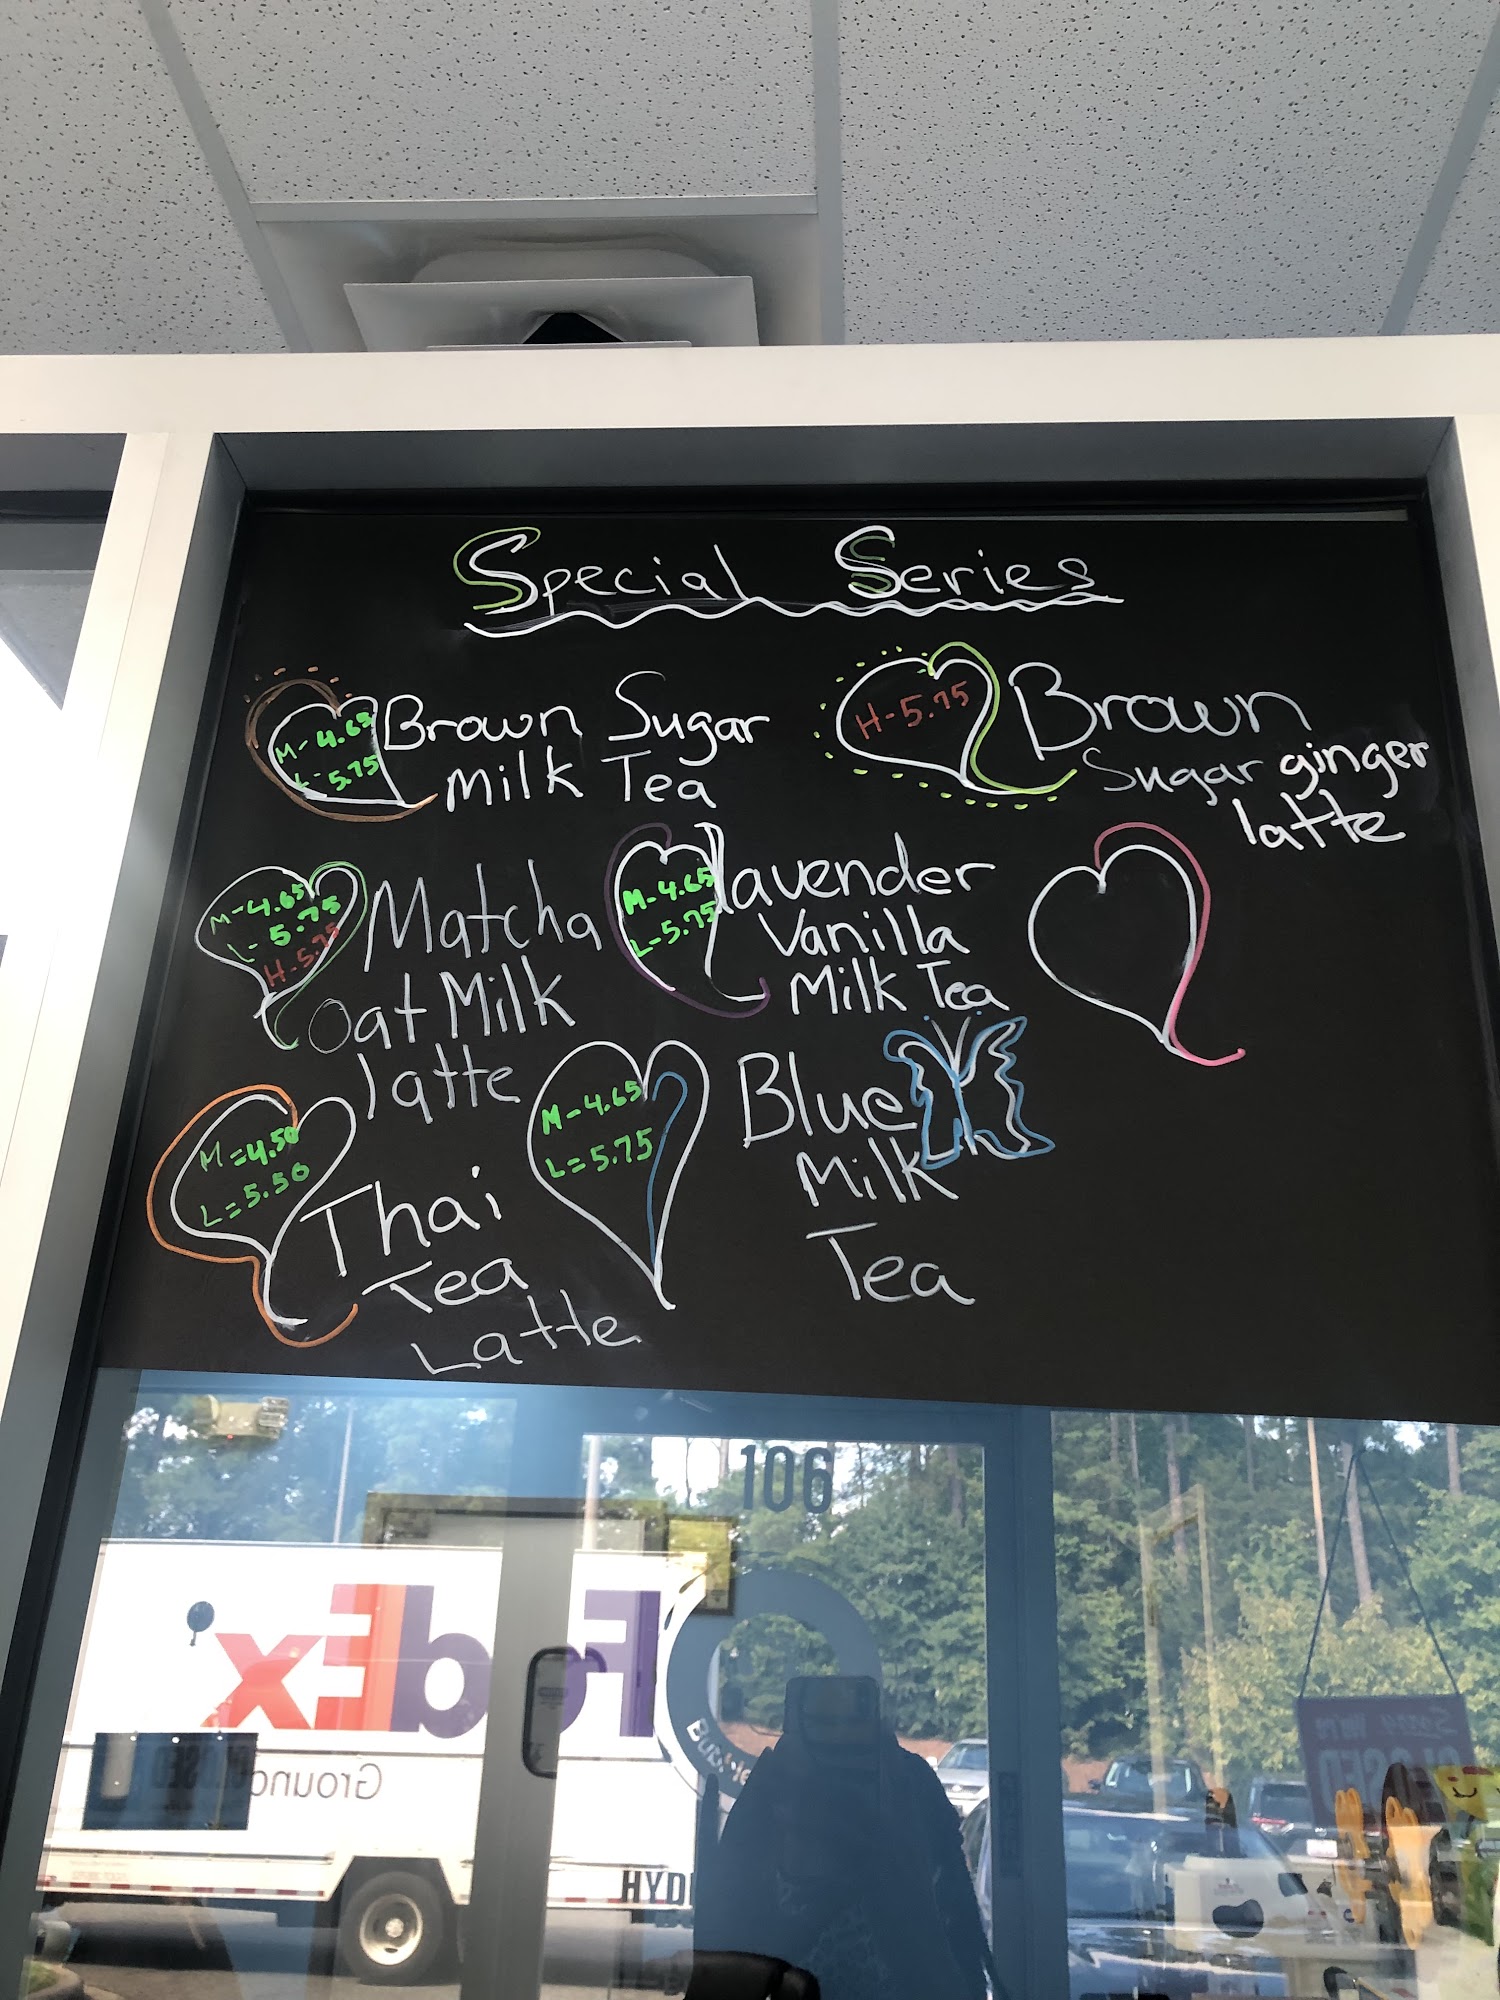 Special Series
M-4.65
L-5.75
Brown Sugar
Milk Tea
H-5.75
Brown
Sugar ginger
latte
M-4.65
L-5.75
H-5.75
Matcha
Oat Milk
latte
M-4.65
L-5.75
lavender
Vanilla
Milk Tea
M=4.50
L=5.50
Thai
Tea
Latte
M-4.65
L=5.75
Blue
Milk
Tea
106
FedEx
Ground
CLOSED
HYD